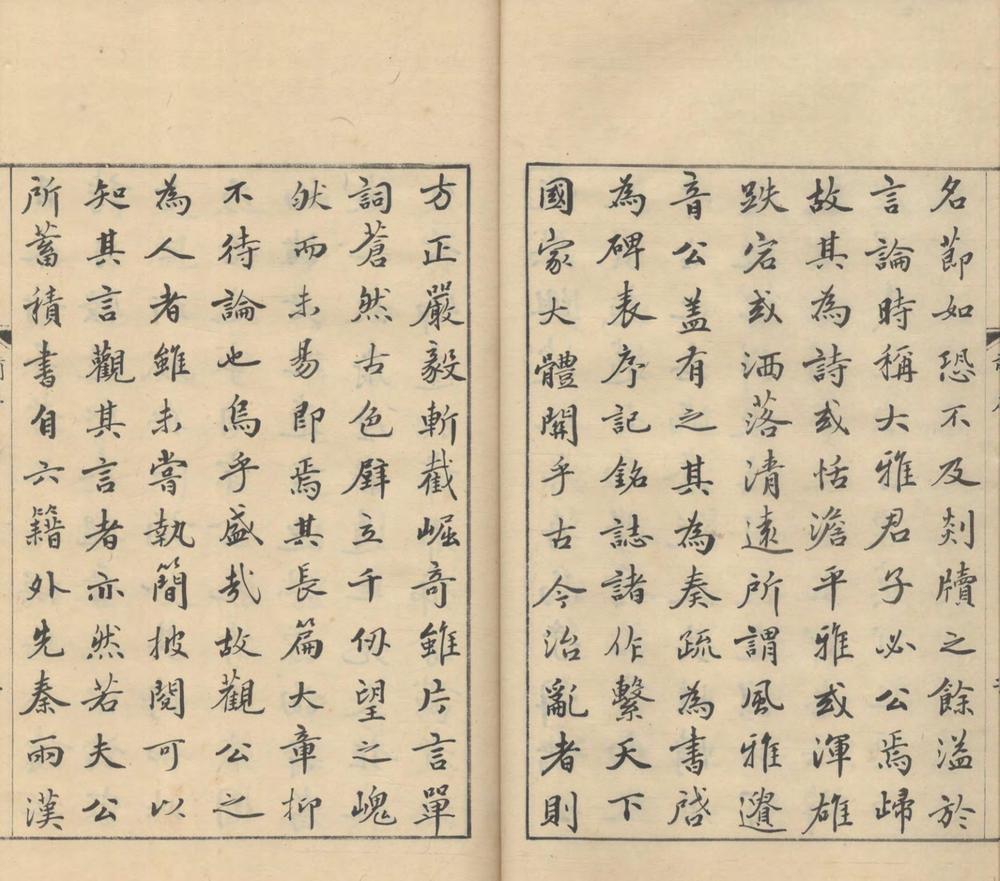 名莭如恐不及剡牘之餘溢於
言論時稱大雅君子必公焉歸
故其為詩或恬澹平雅或渾雄
跌宕或洒落清遠所謂風雅遺
音公盖有之其為奏疏為書啓
為碑表序記銘誌諸作繫天下
國家大體關乎古今治亂者則
方正嚴毅斬截崛奇雖片言單
詞蒼然古色壁立千仞望之巍
然而未易即焉其長篇大章抑
不待論也烏乎盛哉故觀公之
為人者雖未嘗執簡披閱可以
知其言觀其言者亦然若夫公
所蓄積書自六籍外先秦兩漢